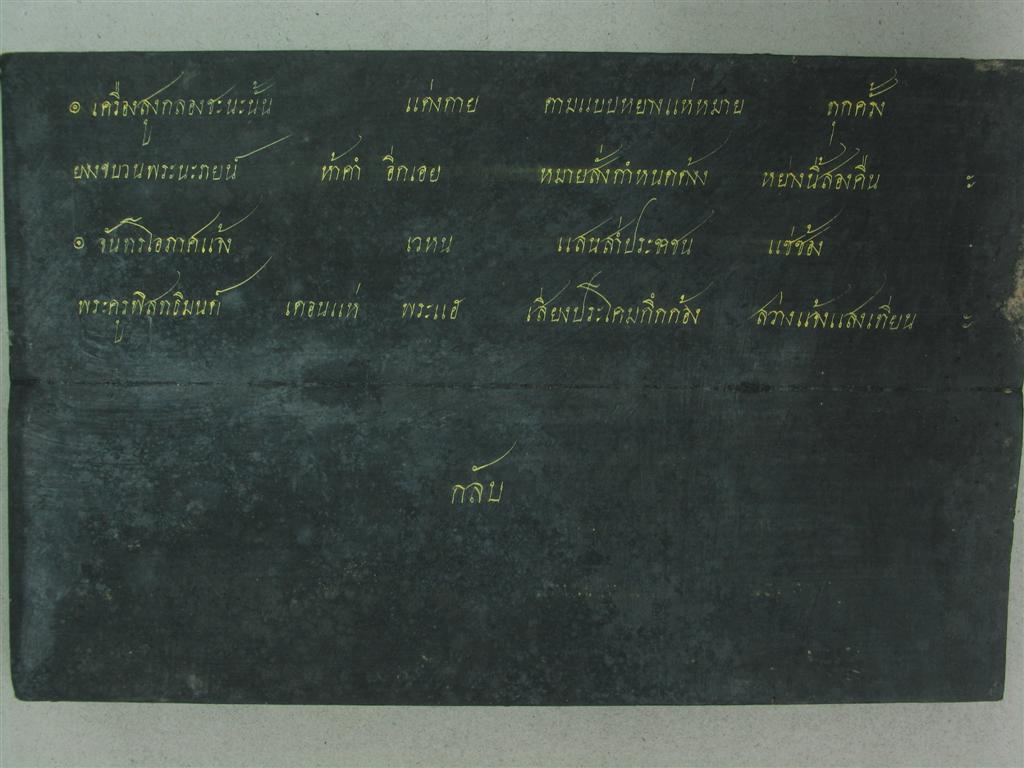 ๏ เครื่องสูงกลองชะนะนั้น แต่งกาย ตามแบบหย่างแห่หมาย ทุกครั้ง
พระนะภายน์ ห้าค่ำ อีกเอย หมายสั่งกำหนดตั้ง หย่างนี้สองคืน ะ
๏ จันทรโอภาศแจ้ง เวหน แสนสำประชาชน แซ่ซ้อง
พระครูพิสุทธิมนต์ เดอนแห่ พระแฮ เสียงประโคมกึกก้อง สว่างแจ้งแสงเทียน ะ
กลับ